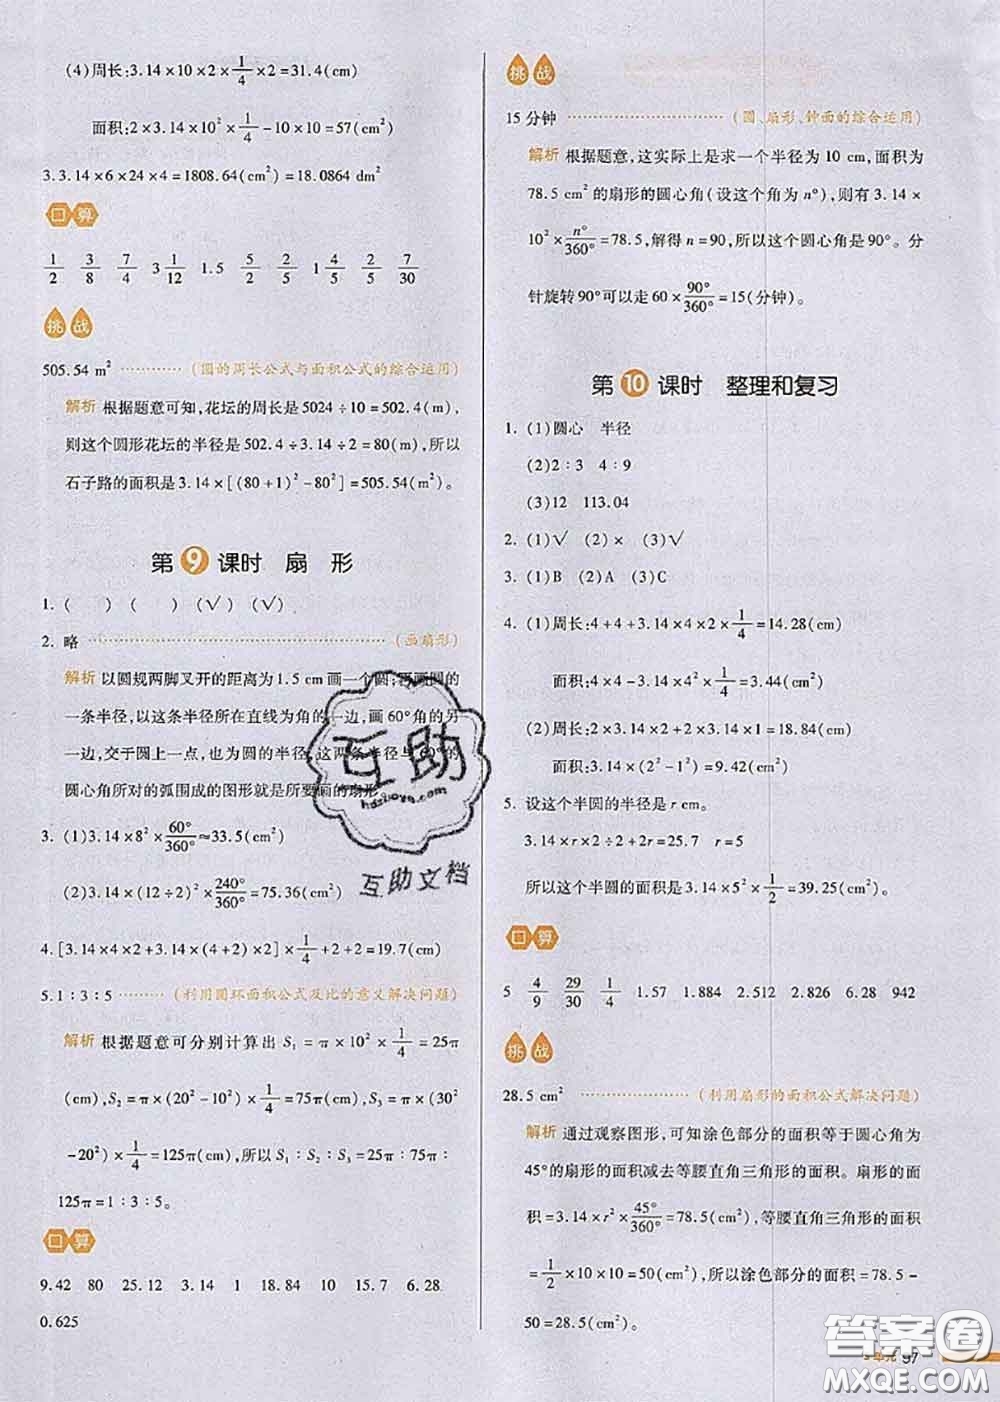 (4)周长:3.14×10×2×1/4×2=31.4(cm)
面积:2×3.14×10²×1/4-10×10=57(cm²)
3.3.14×6×24×4=1808.64(cm²)=18.0864 dm²
口算
1/2 3/8 7/4 3 1/12 1.5 5/2 2/5 1 4/5 2/5 7/30
挑战
505.54 m² (圆的周长公式与面积公式的综合运用)
解析 根据题意可知,花坛的周长是5024÷10=502.4(m),
则这个圆形花坛的半径是502.4÷3.14÷2=80(m),所以
石子路的面积是3.14×[(80+1)²-80²]=505.54(m²)。
第9课时 扇 形
1. ( ) ( ) (√) (√)
2. 略 (画扇形)
解析 以圆规两脚叉开的距离为1.5 cm画一个圆;再画圆的
一条半径,以这条半径所在直线为角的一边,画60°角的另
一边,交于圆上一点,也为圆的半径,这两条半径与60°的
圆心角所对的弧围成的图形就是所要画的扇形
3. (1)3.14×8²×60°/360°≈33.5(cm²)
(2)3.14×(12÷2)²×240°/360°=75.36(cm²)
4.[3.14×4×2+3.14×(4+2)×2]×1/4+2+2=19.7(cm)
5.1∶3∶5 (利用圆环面积公式及比的意义解决问题)
解析 根据题意可分别计算出S₁=π×10²×1/4=25π
(cm),S₂=π×(20²-10²)×1/4=75π(cm),S₃=π×(30²
-20²)×1/4=125π(cm),所以S₁∶S₂∶S₃=25π∶75π∶
125π=1∶3∶5。
口算
9.42 80 25.12 3.14 1 18.84 10 15.7 6.28
0.625
挑战
15分钟 (圆、扇形、钟面的综合运用)
解析 根据题意,这实际上是求一个半径为10 cm,面积为
78.5 cm²的扇形的圆心角(设这个角为n°),则有3.14×
10²×n°/360°=78.5,解得n=90,所以这个圆心角是90°。分
针旋转90°可以走60×90°/360°=15(分钟)。
第10课时 整理和复习
1. (1)圆心 半径
(2)2∶3 4∶9
(3)12 113.04
2. (1)√ (2)× (3)√
3. (1)B (2)A (3)C
4. (1)周长:4+4+3.14×4×2×1/4=14.28(cm)
面积:4×4-3.14×4²×1/4=3.44(cm²)
(2)周长:2×3.14×2+2×3.14×1=18.84(cm)
面积:3.14×(2²-1²)=9.42(cm²)
5. 设这个半圆的半径是r cm。
3.14×r×2÷2+2r=25.7 r=5
所以这个半圆的面积是3.14×5²×1/2=39.25(cm²)。
口算
5 4/9 29/30 1/4 1.57 1.884 2.512 2.826 6.28 942
挑战
28.5 cm² (利用扇形的面积公式解决问题)
解析 通过观察图形,可知涂色部分的面积等于圆心角为
45°的扇形的面积减去等腰直角三角形的面积。扇形的面
积=3.14×r²×45°/360°=78.5(cm²),等腰直角三角形的面积
=1/2×10×10=50(cm²),所以涂色部分的面积=78.5-
50=28.5(cm²)。
单元 97
互助
hdzuoye.com
互助文档
答案圈
MXQE.COM